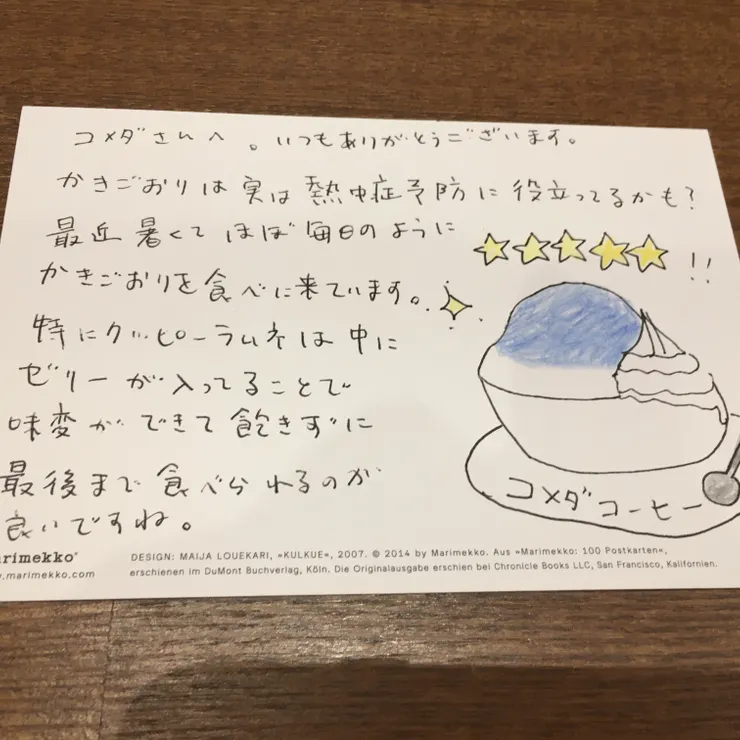 コメダさんへ。いつもありがとうございます。
かきごおりは実は熱中症予防に役立ってるかも?
最近暑くてほぼ毎日のように
かきごおりを食べに来ています。
!!
特にクッピーラムネは中に
ゼリーが入ってることで
味変ができて飽きずに
最後まで食べられるのが
良いですね。
コメダコーヒー
arimekko®
.marimekko.com
DESIGN: MAIJA LOUEKARI, »KULKUE«, 2007. © 2014 by Marimekko. Aus »Marimekko: 100 Postkarten«,
erschienen im DuMont Buchverlag, Köln. Die Originalausgabe erschien bei Chronicle Books LLC, San Francisco, Kalifornien.